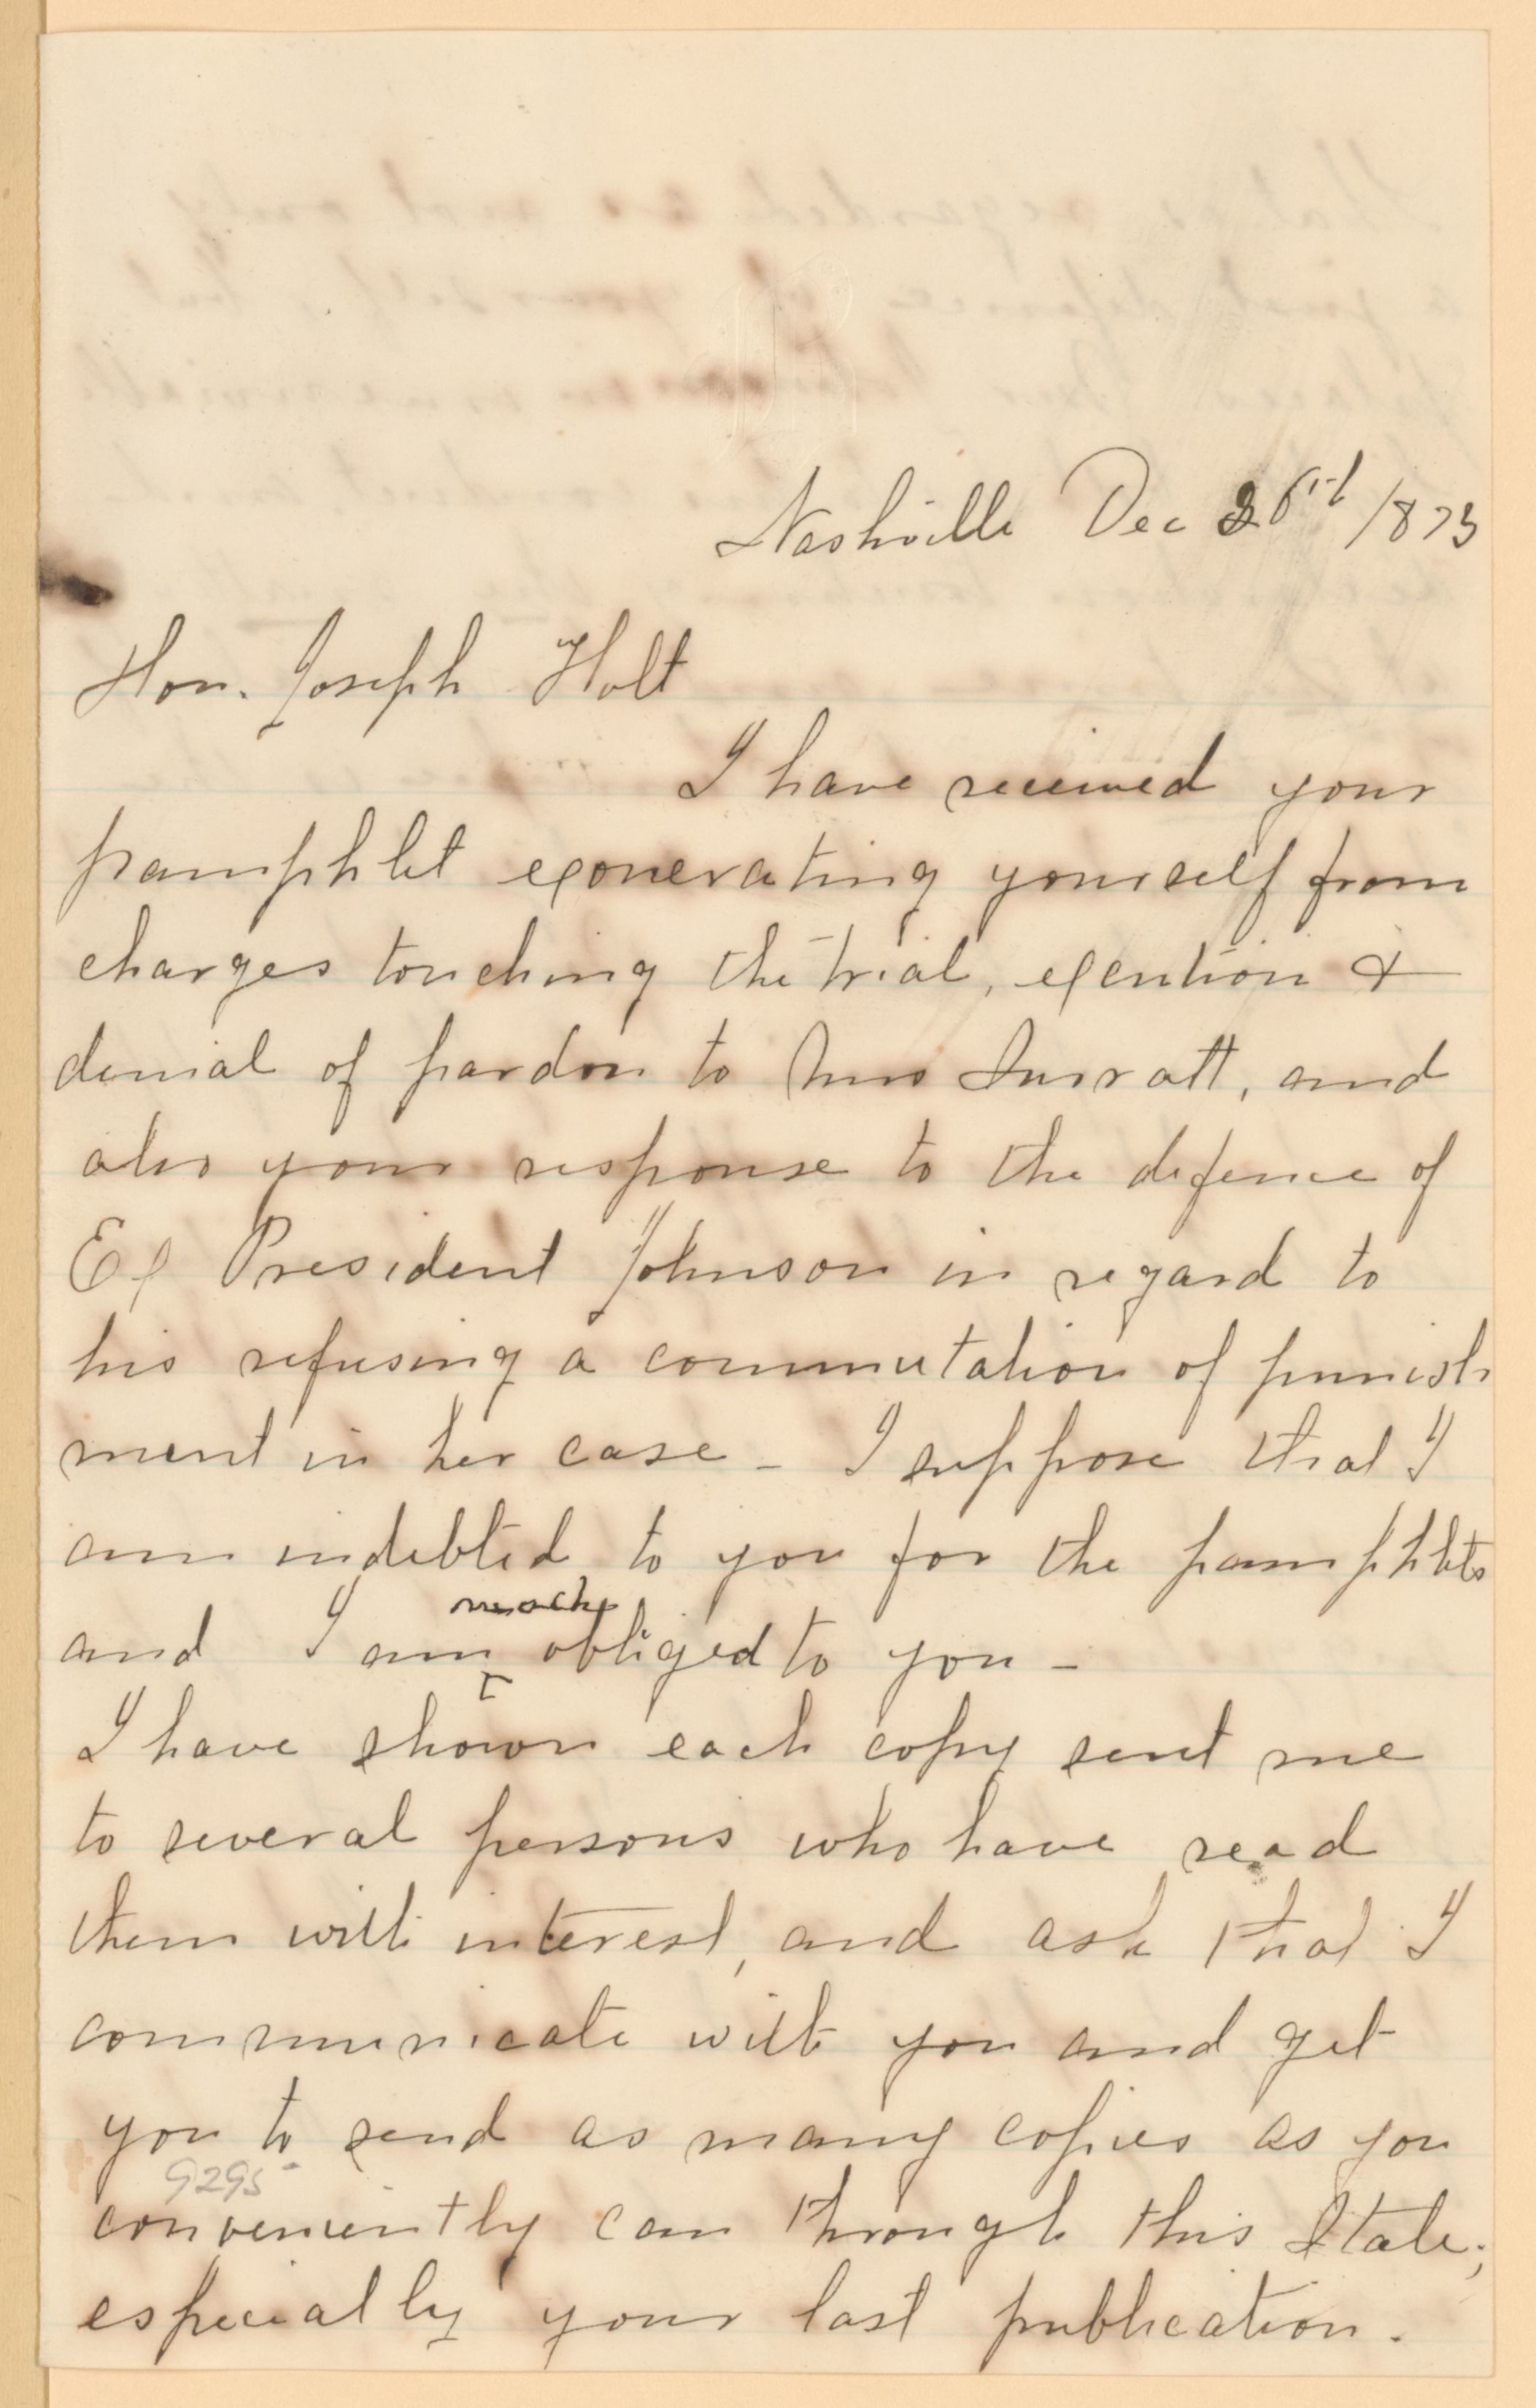 Nashville Dec 26th 1873
Hon. Joseph Holt
I have received your
pamphlet exonerating yourself from
charges touching the trial, exution &
denial of pardon to Mrs Surratt, and
also your response to the defence of
Ex President Johnson in regard to
his refusing a commutation of punish
ment in her case - I suppose that I
am indebted to you for the pamphlets
and I am much obliged to you -
I have shown each copy sent me
to several persons who have read
them with interest, and ask that I
communicate with you and get
you to send as many copies as you
9295
conveniently can through this State;
especially your last publication.